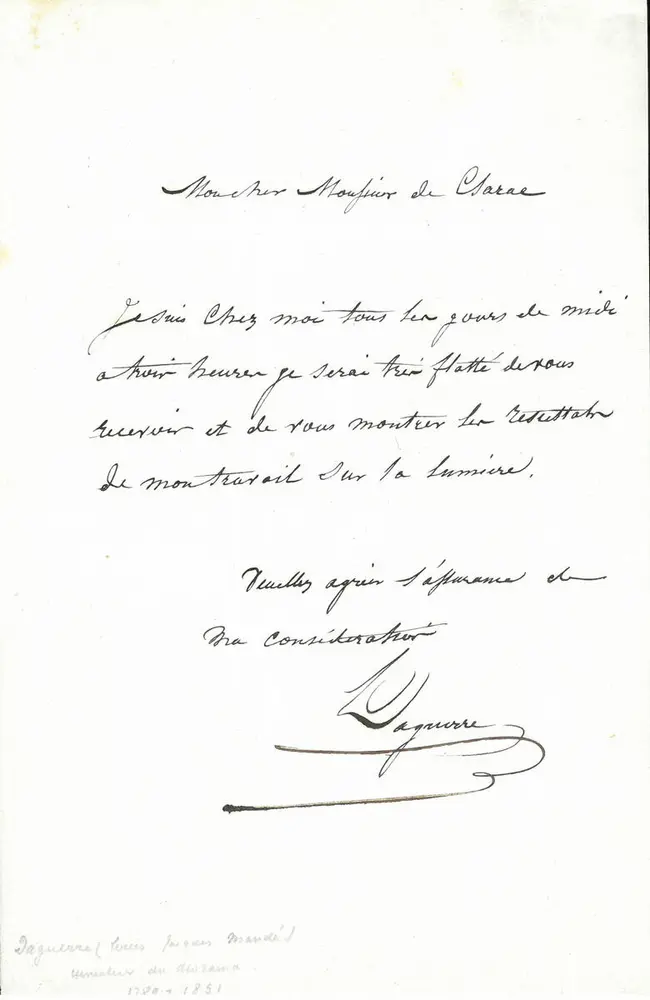 Mon cher Monsieur de Clarac
Je suis chez moi tous les jours de midi
a trois heures je serai très flatté de vous
recevoir et de vous montrer les resultats
de mon travail sur la lumière.
Veuillez agréer l'assurance de
ma considération
Daguerre
Daguerre (Louis Jacques Mandé)
inventeur du diorama
1789 - 1851